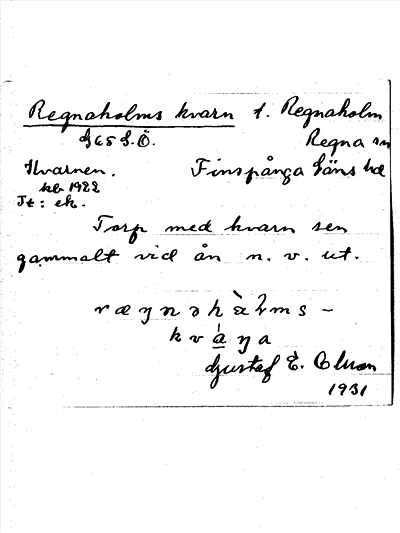 Regnaholms kvarn t. Regnaholm
G65 S.Ö. Regna sn
Kvarnen. Finspånga läns hd
kb 1922
Tt: ek.
Torp med kvarn sen
gammalt vid ån n. v. ut.
Gustaf E.
1931